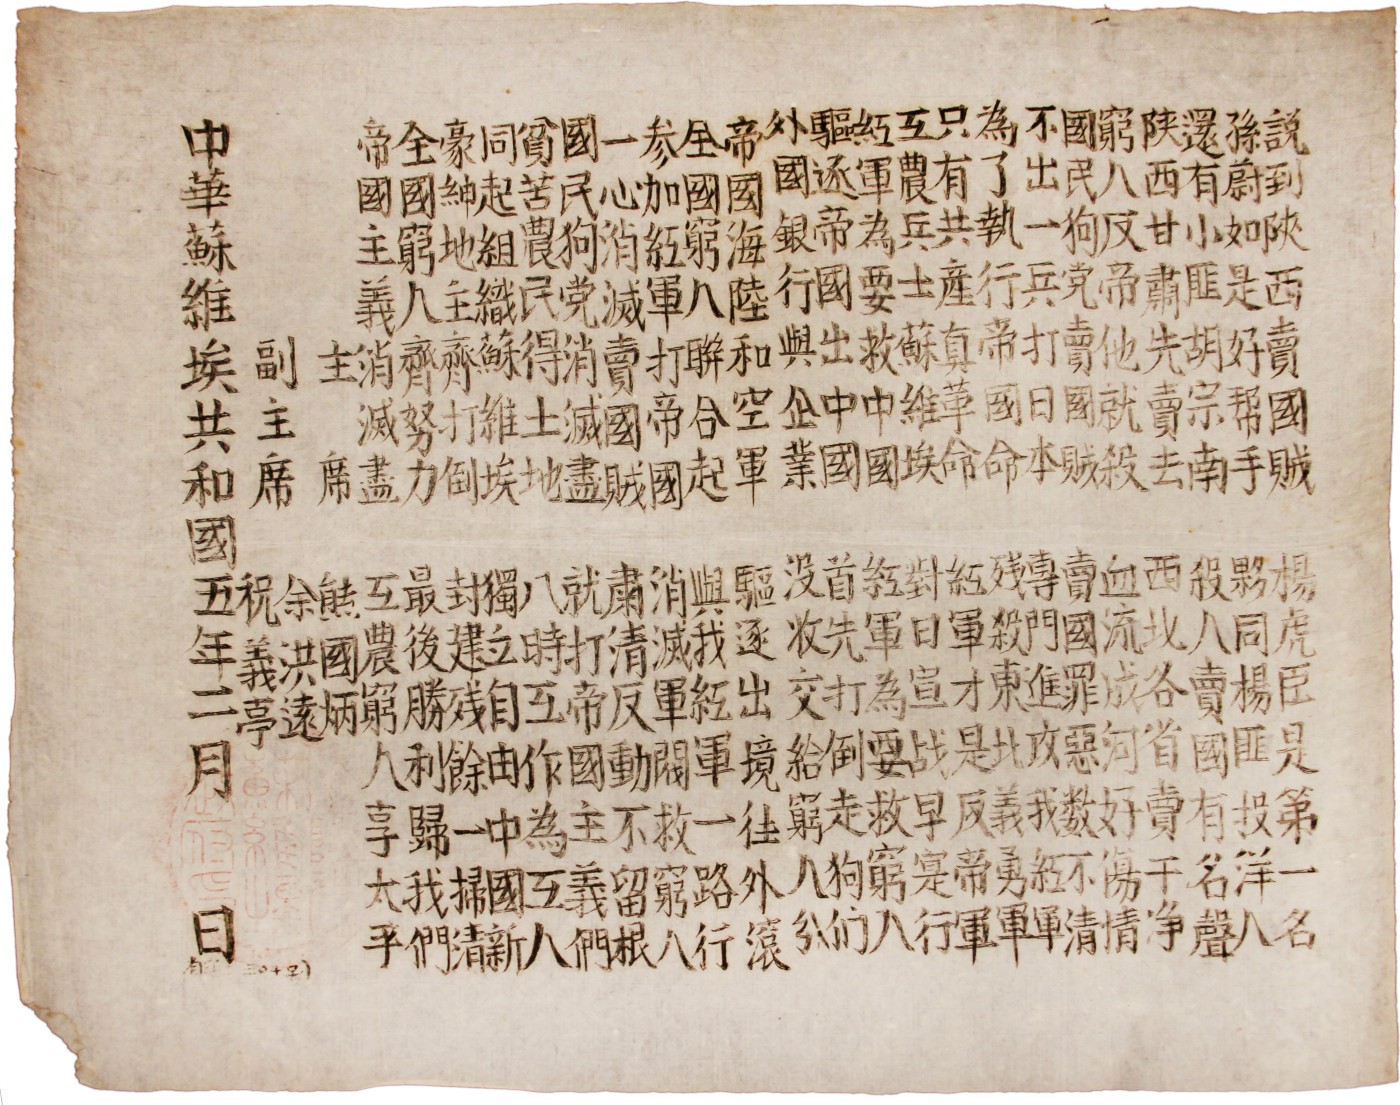 說到陝西賣國賊 楊虎臣是第一名
孫蔚如是好帮手 夥同楊匪投洋人
還有小匪胡宗南 殺人賣國有名聲
陝西甘肅先賣去 西北各省賣干净
窮人反帝他就殺 血流成河好傷情
國民狗党賣國賊 賣國罪惡数不清
不出一兵打日本 專門進攻我紅軍
為了執行帝國命 残殺東北義勇軍
只有共產真革命 紅軍才是反帝軍
工農兵士蘇維埃 對日宣战早寔行
紅軍為要救中國 紅軍為要救窮人
驅逐帝國出中國 首先打倒走狗们
外國銀行與企業 没收交給窮人分
帝國海陸和空軍 驅逐出境往外滾
全國窮人聯合起 與我紅軍一路行
参加紅軍打帝國 消滅軍閥救窮人
一心消滅賣國賊 肅清反動不留根
國民狗党消滅盡 就打帝國主義們
貧苦農民得土地 八時工作為工人
同起組織蘇維埃 獨立自由中國新
豪紳地主齊打倒 封建残餘一掃清
全國窮人齊努力 最後勝利歸我們
帝國主義消滅盡 工農窮人享太平
主席 熊國炳
副主席 余洪遠
祝義亭
中華蘇維埃共和國五年二月 日